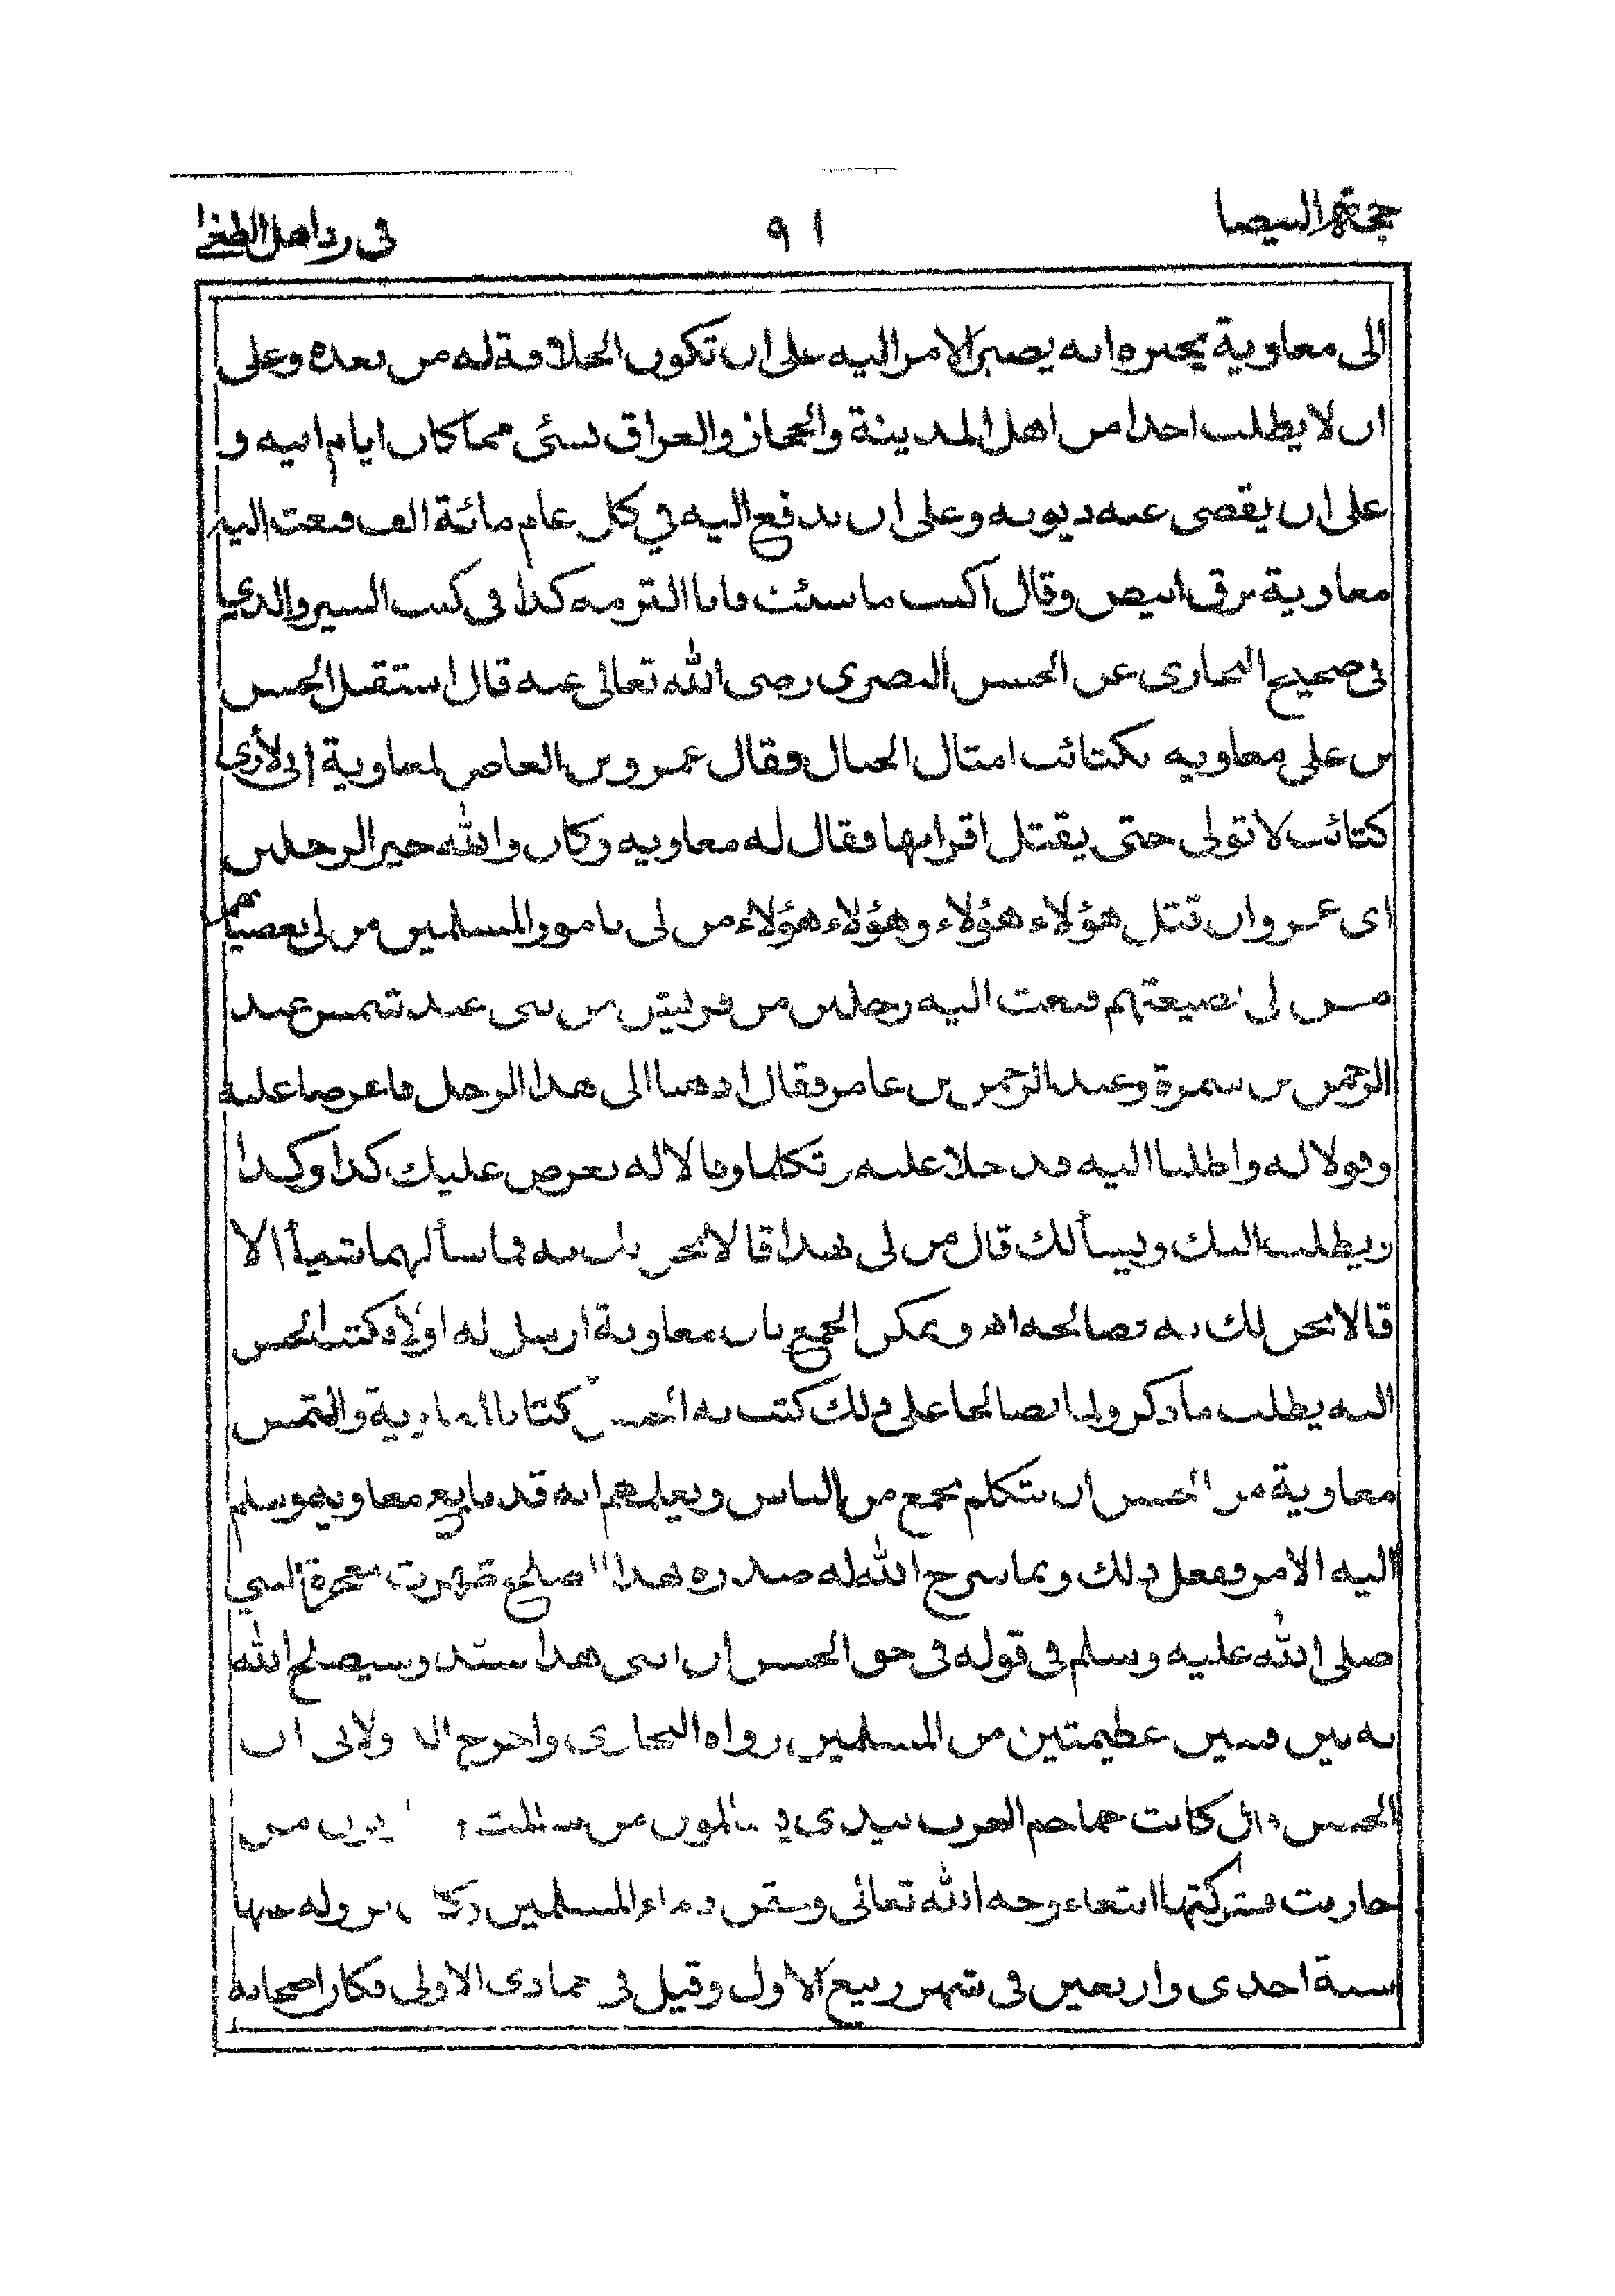 حجة البيضا ٩١ فى رد اهل الطغا
الى معاوية يخبره انه يصير الامر اليه على ان تكون الخلافة له من بعده وعلى
ان لا يطلب احدا من اهل المدينة والحجاز والعراق بشئ مما كان ايام ابيه و
على ان يقضى عنه ديونه وعلى ان يدفع اليه في كل عام مائة الف فبعث اليه
معاوية برق ابيض وقال اكتب ما شئت فانا التزمه كذا فى كتب السير والذي
فى صحيح البخارى عن الحسن البصرى رضى الله تعالى عنه قال استقبل الحسن
بن على معاويه بكتائب امثال الجبال فقال عمرو بن العاص لمعاوية انى لأرى
كتائب لا تولى حتى يقتل اقرانها فقال له معاويه وكان والله خير الرجلين
اى عمرو ان قتل هؤلاء هؤلاء وهؤلاء هؤلاء من لى بامور المسلمين من لى
من لى بضيعتهم فبعث اليه رجلين من قريش من بنى عبد شمس عبد
الرحمن بن سمرة وعبد الرحمن بن عامر فقال اذهبا الى هذا الرجل فاعرضا عليه
وقولا له واطلبا اليه فدخلا عليه وتكلما وقالا له نعرض عليك كذا وكذا
ويطلب اليك ويسألك قال من لى بهذا قالا نحن لك به فما سألهما شيأ الا
قالا نحن لك به فصالحه اه ويمكن الجمع بان معاوية ارسل له اولا فكتب الحسن
اليه يطلب ما ذكر ولما تصالحا على ذلك كتب به الحسن كتابا لمعاوية والتمس
معاوية من الحسن ان يتكلم بجمع من الناس ويعلمهم انه قد بايع معاويه وسلم
اليه الامر ففعل ذلك وبما شرح الله له صدره هذا الصلح ظهرت معجزة النبي
صلى الله عليه وسلم فى قوله فى حق الحسن ان ابنى هذا سيد وسيصلح الله
به بين فئتين عظيمتين من المسلمين رواه البخارى واخرج الدولابى ان
الحسن قال كانت جماجم العرب بيدى يسالمون من سالمت و يحاربون من
حاربت فتركتها ابتغاء وجه الله تعالى وحقن دماء المسلمين وكان نزوله عنها
سنة احدى واربعين فى شهر ربيع الاول وقيل فى جمادى الاولى فكان اصحابه